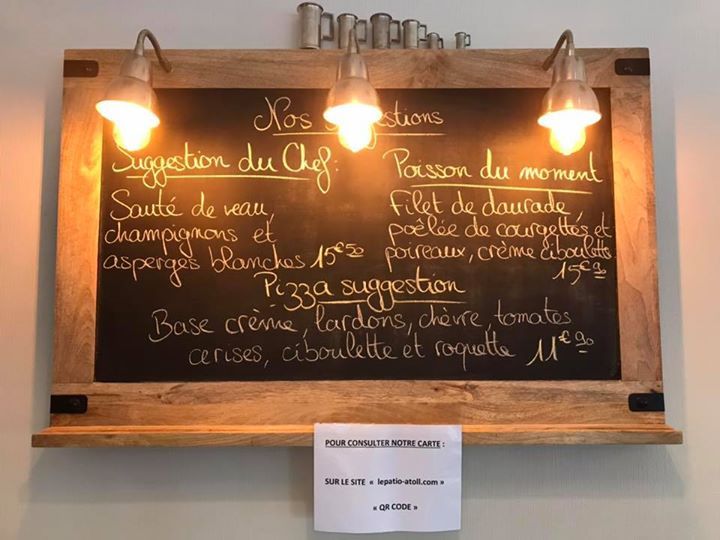 Nos suggestions
Suggestion du Chef:
Sauté de veau,
champignons et
asperges blanches 15€50
Poisson du moment
Filet de daurade,
poêlée de courgettes et
poireaux, crème ciboulette
15€90
Pizza suggestion
Base crème, lardons, chèvre, tomates
cerises, ciboulette et roquette 11€90
POUR CONSULTER NOTRE CARTE :
SUR LE SITE « lepatio-atoll.com »
« QR CODE »